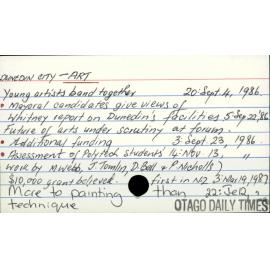 DUNEDIN CITY - ART
Young artists band together 20: Sept. 4, 1986.
• Mayoral candidates give views of
Whitney report on Dunedin's facilities 5 Sep 22 '86
Future of arts under scrutiny at forum.
• Additional funding 3 Sept. 23, 1986
• Assessment of Polytech students' 14: Nov 13, "
work by M. Webb, J. Tomlin, D. Ball & P. Nicholls)
$10,000 grant believed first in NZ 3: Nov 19, 1987
More to painting than 22: "
technique
OTAGO DAILY TIMES